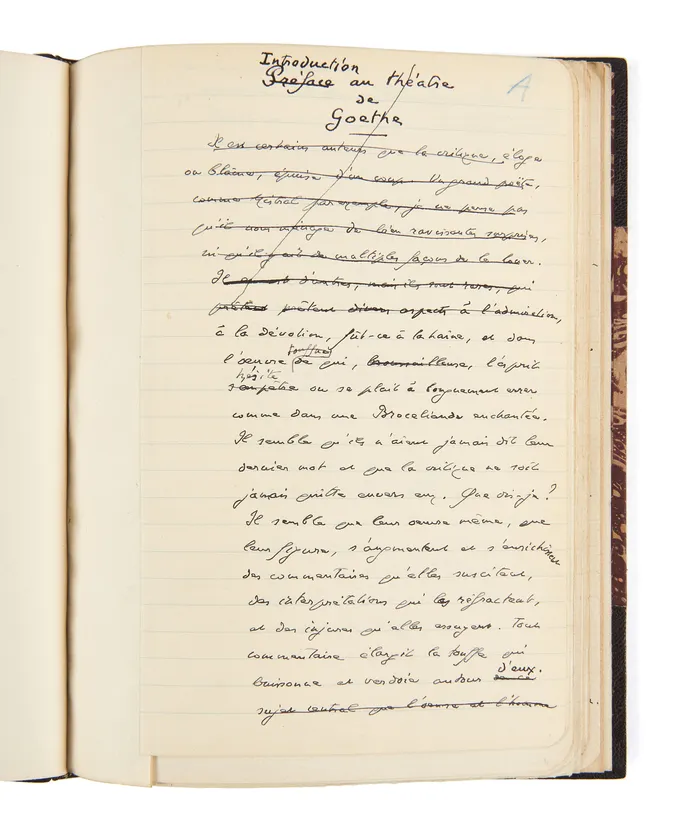 Introduction
Préface au théâtre
A
de
Goethe
Il est certains auteurs que la critique, éloge
ou blâme, épuise d'un coup. Un grand poète,
comme Mistral par exemple, je ne pense pas
qu'il nous ménage de bien ravissantes surprises,
ni qu'il y ait de multiples façons de le louer.
Il en est d'autres, mais ils sont rares, qui
prêtent divers aspects à l'admiration,
à la dévotion, fût-ce à la haine, et dans
touffue
l'œuvre de qui, broussailleuse, l'esprit
hésite
s'empêtre ou se plaît à longuement errer
comme dans une Broceliande enchantée.
Il semble qu'ils n'aient jamais dit leur
dernier mot et que la critique ne soit
jamais quitte envers eux. Que dis-je?
Il semble que leur œuvre même, que
leur figure, s'augmentent et s'enrichissent
des commentaires qu'elles suscitent,
des interprétations qui les réfractent,
et des injures qu'elles essuyent. Tout
commentaire élargit la touffe qui
d'eux.
buissonne et verdoie autour de ce
sujet central que l'œuvre et l'homme